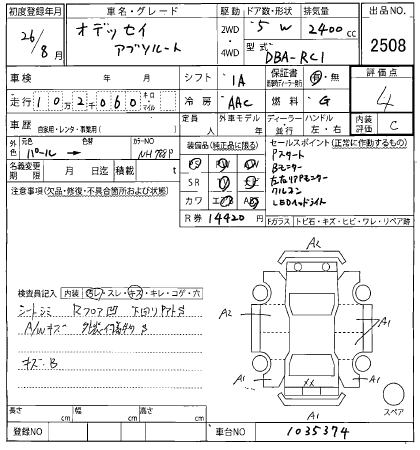 初度登録年月 車名・グレード 駆動 ドア数・形状 排気量 出品NO.
26/8月 オデッセイ アブソルート 2WD・4WD 5W 2400cc 2508
型式 DBA-RC1
車検 年 月 シフト IA 保証書 有・無 評価点
走行 102060 キロ・マイル 冷房 AAC 燃料 G 4
車歴 自家用・レンタ・事業用( ) 定員 人 外車モデル 年 ディーラー 並行 ハンドル 左・右 内装評価 C
外色 元色 パール 色替 カラーNO NH788P
装備品(純正品に限る)
PS PW
SR
カワ エアB ABS
R券 14420円
セールスポイント(正常に作動するもの)
Pスタート
Bモニター
左右リアPモニター
クルコン
LEDヘッドライト
名義変更期限 月 日迄 積載 t
注意事項(欠品・修復・不具合箇所および状態)
Fガラス トビ石・キズ・ヒビ・ワレ・リペア跡
検査員記入 内装 ヨゴレ・スレ・キズ・キレ・コゲ・穴
シートシミ Rフロア凹 下回りサビS
A/Wキズ
キズ・B
A2
A2
A1
A1
A1
XX
A1
スペア
長さ cm 幅 cm 高さ cm
登録NO 車台NO 1035374